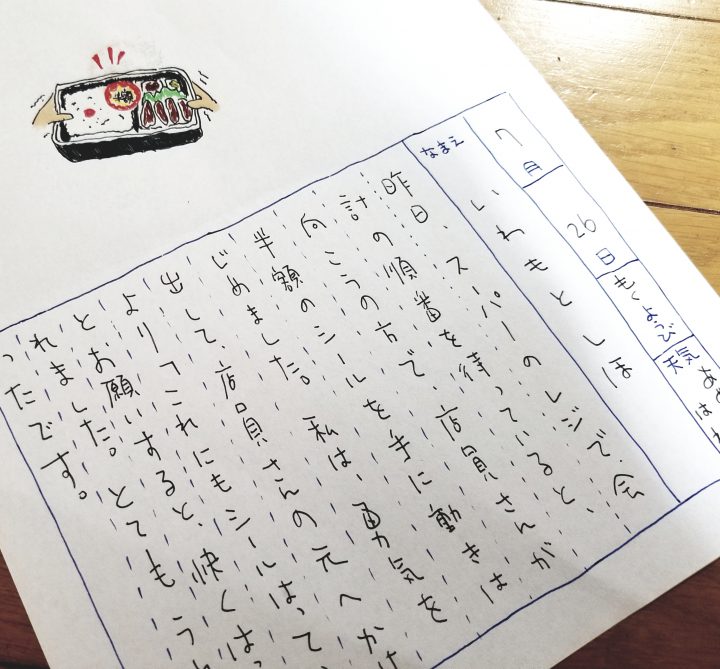 7月26日もくようび天気
なまえ いわもとしほ
昨日、スーパーのレジで、会
計の順番を待っていると、
向こうの方で、店員さんが
半額のシールを手に動きは
じめました。私は、勇気を
出して店員さんの元へかけ
より「これにもシールはって
とお願いすると、快くはっ
れました。とてもうれ
ったです。